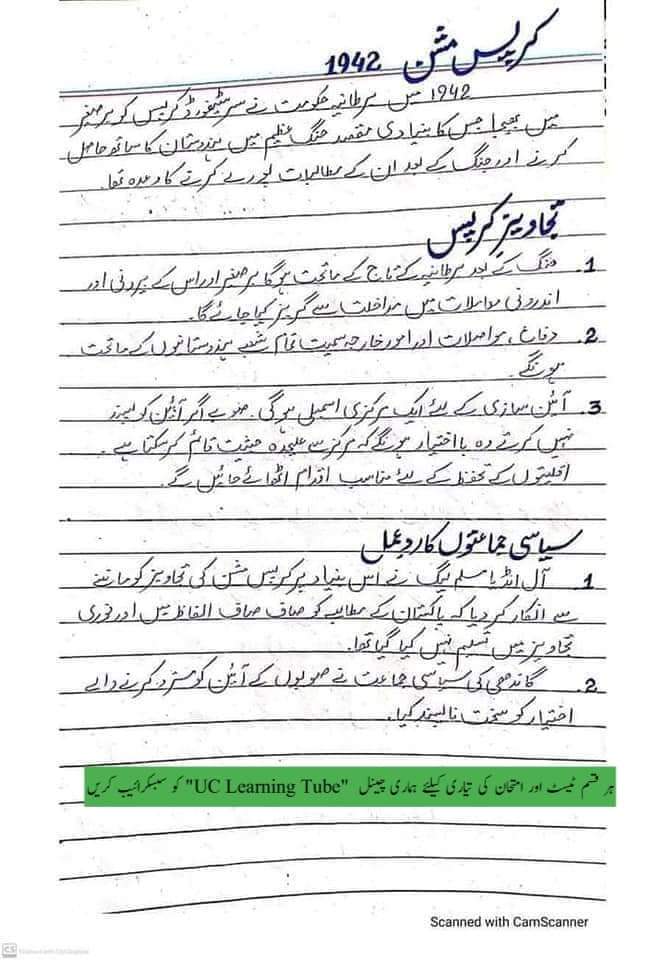 کرپس مشن 1942
1942 میں برطانیہ حکومت نے سر سٹیفورڈ کرپس کو برصغیر
میں بھیجا جس کا بنیادی مقصد جنگ عظیم میں ہندوستان کا ساتھ حاصل
کرنے اور جنگ کے بعد ان کے مطالبات پورے کرنے کا وعدہ تھا۔
تجاویز کرپس
1. جنگ کے بعد برطانیہ کے تاج کے ماتحت ہوگا برصغیر اور اس کے بیرونی اور
اندرونی معاملات میں مداخلت سے گریز کیا جائے گا۔
2. دفاع، مواصلات اور امور خارجہ سمیت تمام شعبے ہندوستانیوں کے ماتحت
ہونگے۔
3. آئین سازی کے لئے ایک مرکزی اسمبلی ہوگی۔ صوبے اگر آئین کو پسند
نہیں کرتے وہ بااختیار ہونگے کہ مرکز سے علیحدہ حیثیت قائم کر سکتا ہے۔
اقلیتوں کے تحفظ کے لئے مناسب اقدام اٹھوائے جائیں گے۔
سیاسی جماعتوں کا ردعمل
1. آل انڈیا مسلم لیگ نے اس بنیاد پر کرپس مشن کی تجاویز کو ماننے
سے انکار کر دیا کہ پاکستان کے مطالبے کو صاف صاف الفاظ میں اور فوری
تجاویز میں تسلیم نہیں کیا گیا تھا۔
2. گاندھی کی سیاسی جماعت نے صوبوں کے آئین کو مسترد کرنے والے
اختیار کو سخت ناپسند کیا۔
ہر قسم ٹیسٹ اور امتحان کی تیاری کیلئے ہماری چینل "UC Learning Tube" کو سبسکرائیب کریں
Scanned with CamScanner
CS Scanned with CamScanner